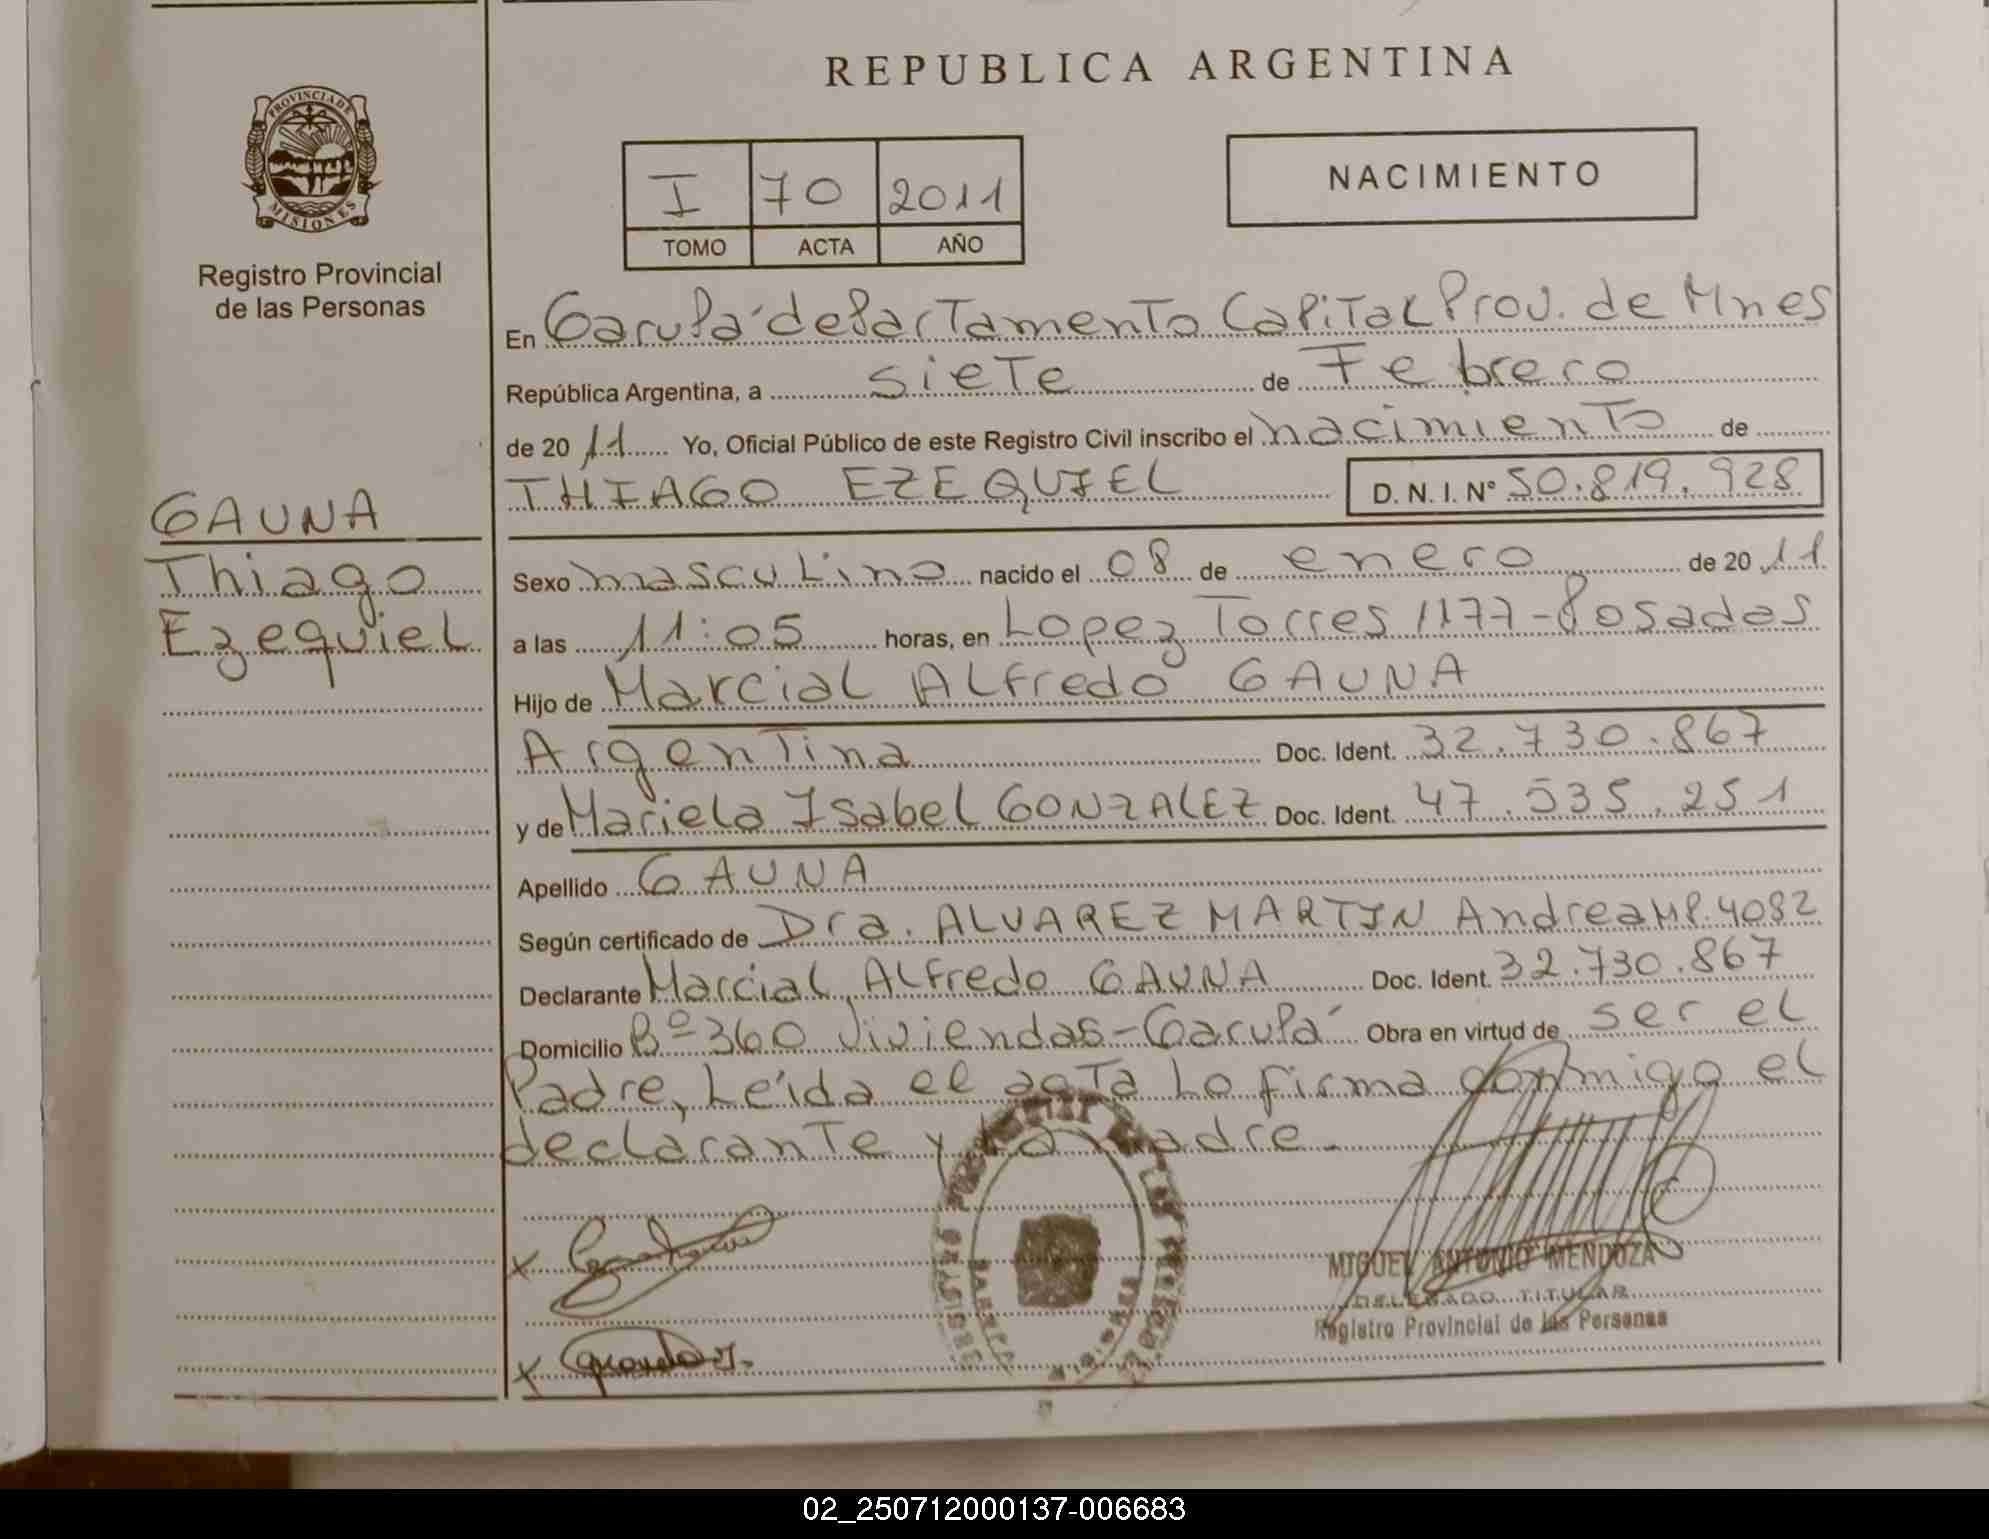 REPUBLICA ARGENTINA
PROVINCIA DE
MISIONES
Registro Provincial
de las Personas
I 70 2011
TOMO ACTA AÑO
NACIMIENTO
En Garupá departamento Capital Prov. de Mnes
República Argentina, a siete de Febrero
de 20 11 Yo, Oficial Público de este Registro Civil inscribo el nacimiento de
THIAGO EZEQUIEL D. N. I. N° 50.819.928
GAUNA
Thiago
Ezequiel
Sexo masculino nacido el 08 de enero de 20 11
a las 11:05 horas, en Lopez Torres 1177-Posadas
Hijo de Marcial Alfredo GAUNA
Argentina Doc. Ident. 32.730.867
y de Mariela Isabel GONZALEZ Doc. Ident. 47.535.251
Apellido GAUNA
Según certificado de Dra. ALVAREZ MARTIN Andrea M.P. 4082
Declarante Marcial Alfredo GAUNA Doc. Ident. 32.730.867
Domicilio Bº 360 Viviendas-Garupá Obra en virtud de ser el
Padre, Leída el acta Lo firma conmigo el
declarante y La Madre.
MIGUEL ANTONIO MENDOZA
DELEGADO TITULAR
Registro Provincial de las Personas
02_250712000137-006683